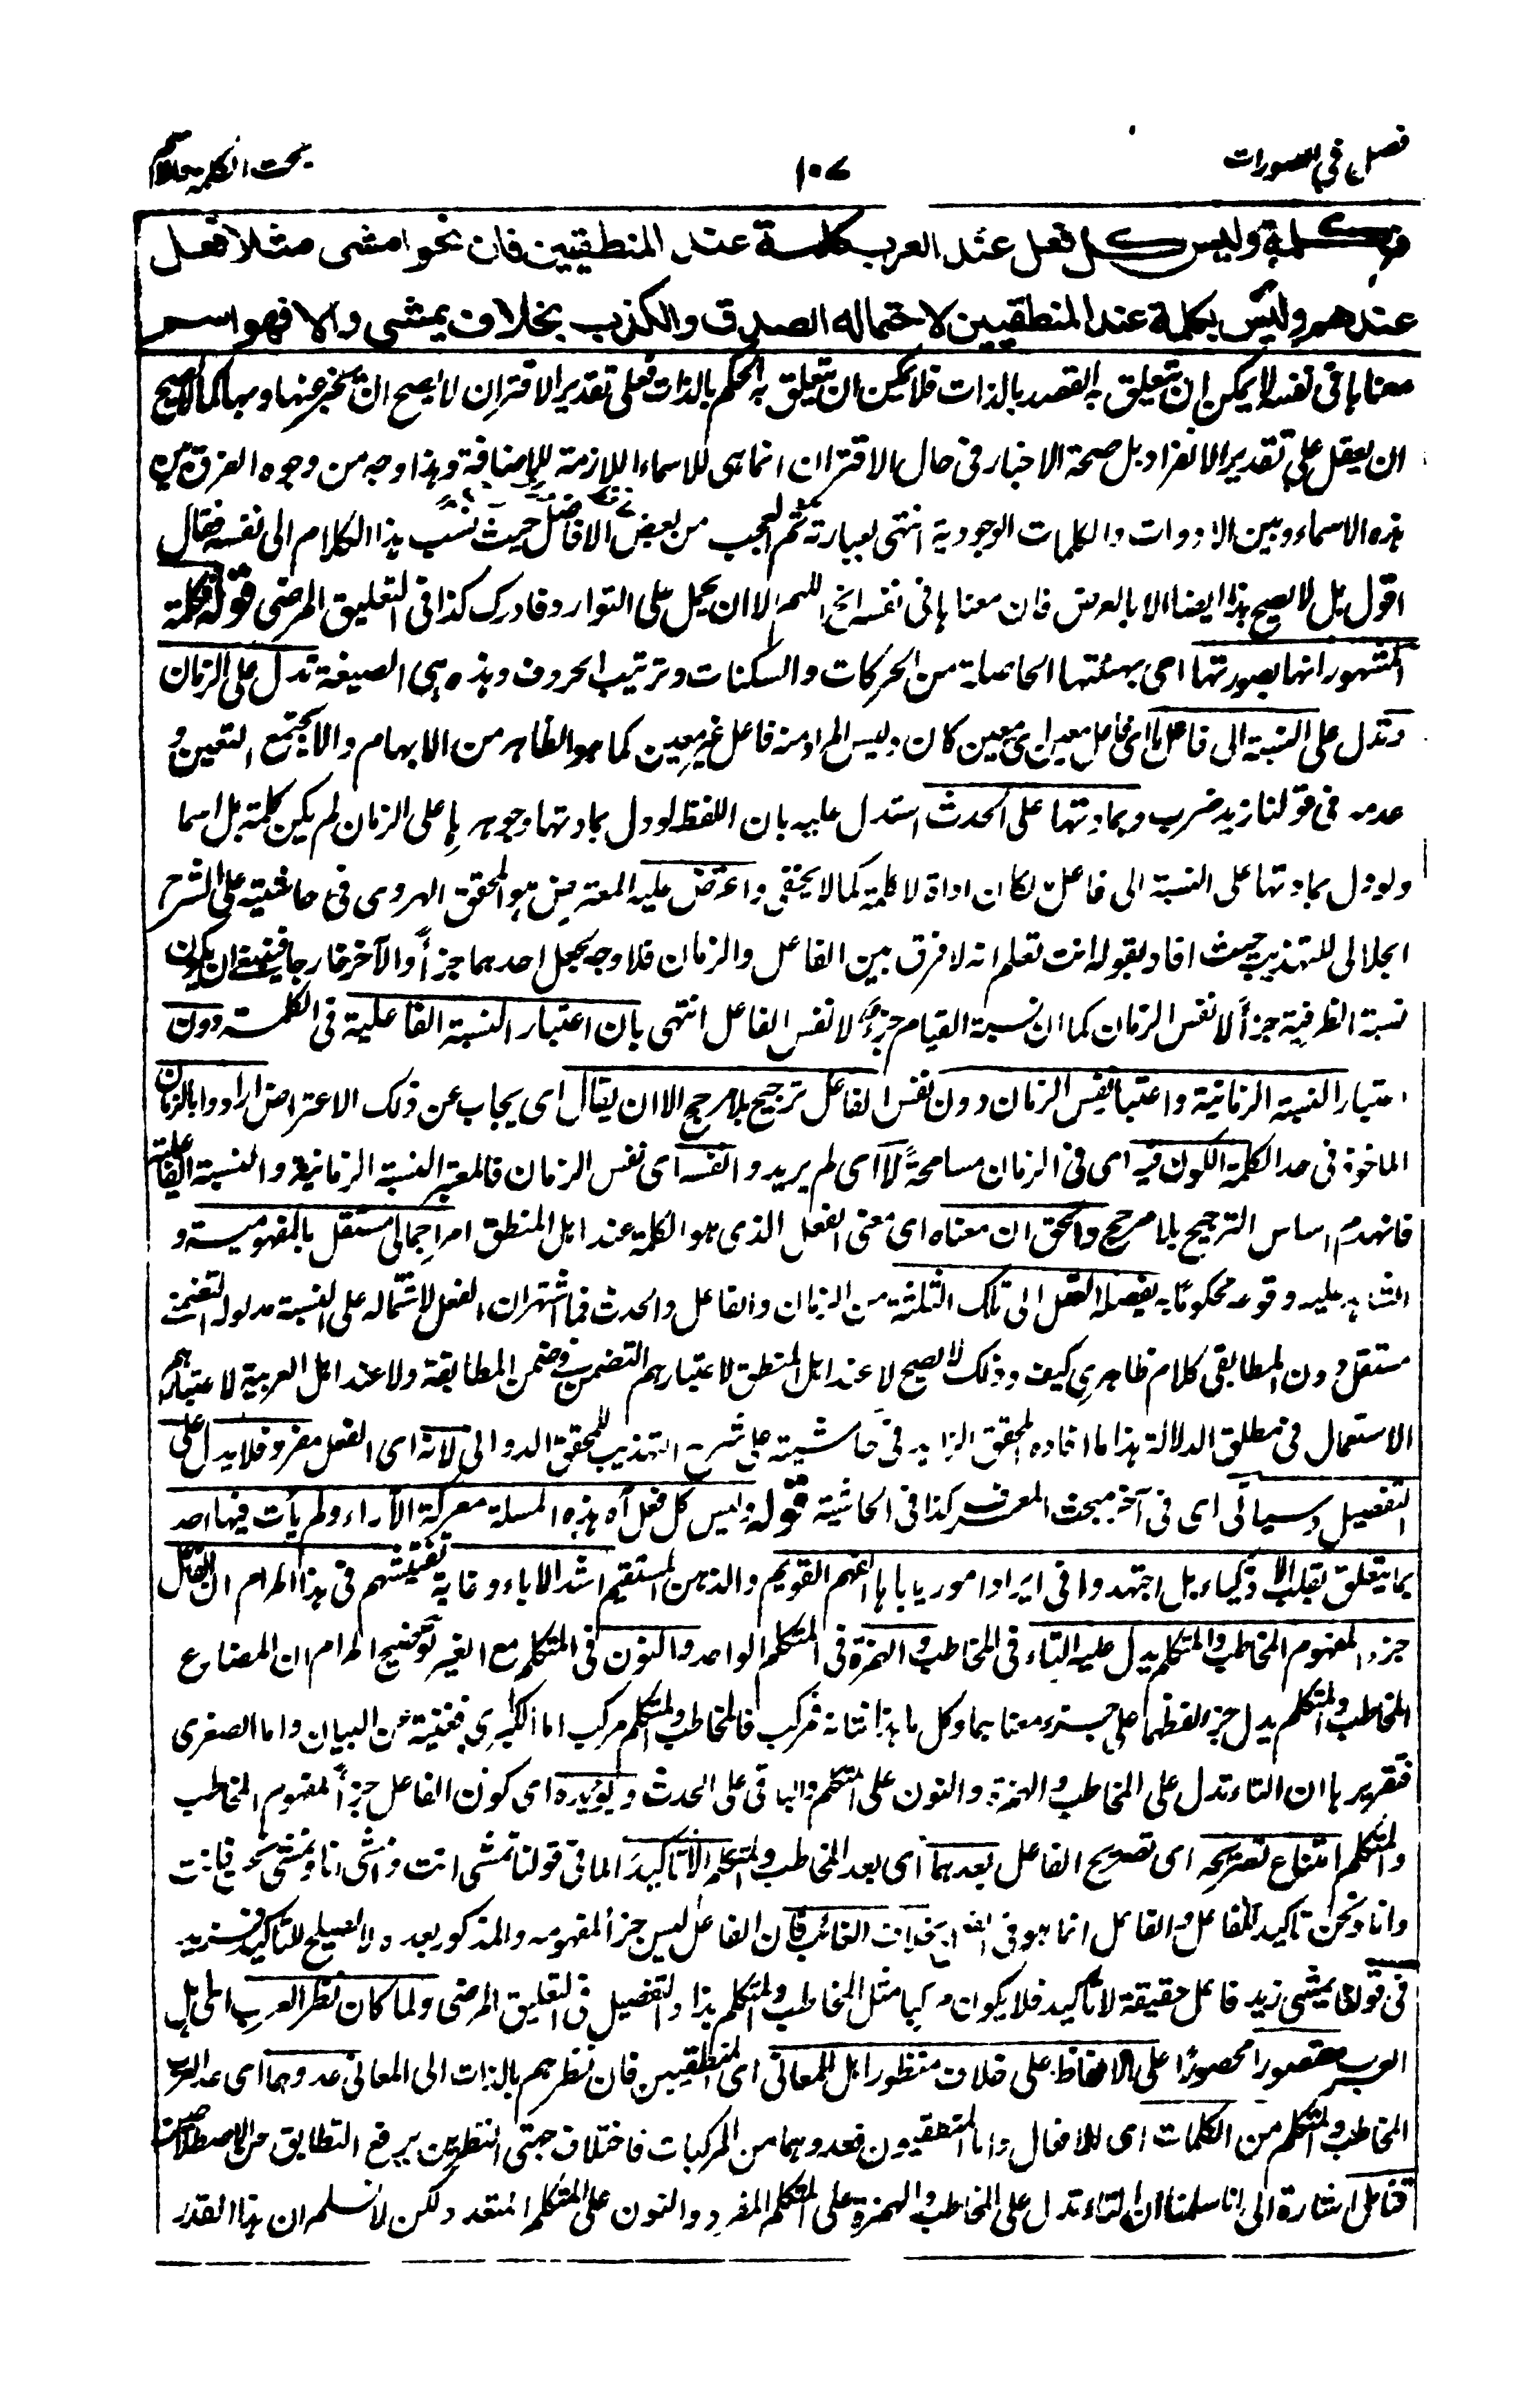 فصل في التصورات
١٠٧
بحث الكلمة والاسم
فهو كلمة وليس كل فعل عند العرب كلمة عند المنطقيين فان نحو امشى مثلا فعل
عندهم وليس بكلمة عند المنطقيين لاحتماله الصدق والكذب بخلاف يمشى والا فهو اسم
معناها في نفسه لا يمكن ان يتعلق به القصد بالذات فلا يمكن ان يتعلق به الحكم بالذات فعلى تقدير الاقتران لا يصح ان يخبر عنها وبها كما لا يصح
ان يعقل على تقدير الانفراد بل صحة الاخبار في حال الاقتران انما هى للاسماء اللازمة للاضافة وهذا وجه من وجوه الفرق بين
هذه الاسماء وبين الادوات والكلمات الوجودية انتهى بعبارته ثم العجب من بعض الافاضل حيث نسب هذا الكلام الى نفسه فقال
اقول بل لا يصح هذا ايضا الا بالعرض فان معناها في نفسه الخ اللهم الا ان يحمل على التوارد فادرك كذا في التعليق المرضى قوله فكلمة
المشهور انها بصورتها اى بهيئتها الحاصلة من الحركات والسكنات وترتيب الحروف وهذه هى الصيغة تدل على الزمان
وتدل على النسبة الى فاعل ما اى فاعل معين اى معين كان وليس المراد منه فاعل غير معين كما هو الظاهر من الابهام والا لاجتمع التعين و
عدمه في قولنا زيد ضرب وبمادتها على الحدث استدل عليه بان اللفظ لو دل بمادتها وجوهرها على الزمان لم يكن كلمة بل اسما
ولو دل بمادتها على النسبة الى فاعل لكان اداة لا كلمة كما لا يخفى واعترض عليه المعترض هو المحقق الهروى في حاشيته على الشرح
الجلالى للتهذيب حيث افاد بقوله انت تعلم انه لا فرق بين الفاعل والزمان فلا وجه لجعل احدهما جزأ والآخر خارجا فينبغى ان يكون
نسبة الظرفية جزأ لا نفس الزمان كما ان نسبة القيام جزء لا نفس الفاعل انتهى بان اعتبار النسبة الفاعلية في الكلمة دون
اعتبار النسبة الزمانية واعتبار نفس الزمان دون نفس الفاعل ترجيح بلا مرجح الا ان يقال اى يجاب عن ذلك الاعتراض ارادوا بالزمان
الماخوذ في حد الكلمة الكون فيه اى في الزمان مسامحة لا اى لم يريدوا نفسه اى نفس الزمان فالمعتبر النسبة الزمانية والنسبة الفاعلية
فانهدم اساس الترجيح بلا مرجح والحق ان معناه اى معنى الفعل الذى هو الكلمة عند اهل المنطق امر اجمالى مستقل بالمفهومية و
الشاهد عليه وقوعه محكوما به يفصله العقل الى تلك الثلثة من الزمان والفاعل والحدث فما اشتهر ان الفعل لاشتماله على النسبة مدلوله التضمنى
مستقل دون المطابقى كلام ظاهرى كيف وذلك لا يصح لا عند اهل المنطق لاعتبارهم التضمن في ضمن المطابقة ولا عند اهل العربية لاعتبارهم
الاستعمال في مطلق الدلالة هذا ما افاده المحقق الزاهد في حاشيته على شرح التهذيب للمحقق الدوانى لانه اى الفعل مفرد فلا يدل على
التفصيل وسيأتى اى في آخر مبحث المعرف كذا في الحاشية قوله وليس كل فعل آه هذه المسئلة معركة الآراء ولم يأت فيها احد
بما يتعلق بقلب الاذكياء بل اجتهدوا في ايراد امور يأباها الفهم القويم والذهن المستقيم اشد الاباء وغاية تفتيشهم في هذا المرام ان الفاعل
جزء لمفهوم المخاطب والمتكلم يدل عليه التاء في المخاطب والهمزة في المتكلم الواحد والنون في المتكلم مع الغير توضيح المرام ان المضارع
المخاطب والمتكلم يدل جزء لفظهما على جزء معناهما وكل ما هذا شانه فمركب فالمخاطب والمتكلم مركب اما الكبرى فغنية عن البيان واما الصغرى
فتقريرها ان التاء تدل على المخاطب والهمزة والنون على المتكلم والباقى على الحدث ويؤيده اى كون الفاعل جزأ لمفهوم المخاطب
والمتكلم امتناع تصريحه اى تصريح الفاعل بعدهما اى بعد المخاطب والمتكلم الا تاكيدا كما في قولنا تمشى انت وامشى انا ونمشى نحن فانت
وانا ونحن تاكيد للفاعل والفاعل انما هو في الفعل بخلاف الغائب فان الفاعل ليس جزأ لمفهومه والمذكور بعده لا يصلح للتاكيد فزيد
في قولنا يمشى زيد فاعل حقيقة لا تاكيد فلا يكون مركبا مثل المخاطب والمتكلم هذا والتفصيل في التعليق المرضى ولما كان نظر العرب اى اهل
العرب مقصورا محصورا على الالفاظ على خلاف منظور اهل المعانى اى المنطقيين فان نظرهم بالذات الى المعانى عدوهما اى عد العرب
المخاطب والمتكلم من الكلمات اى الافعال واما المنطقيون فعدوهما من المركبات فاختلاف جهتى النظرين يرفع التطابق من الاصطلاحين
فتامل اشارة الى انا سلمنا ان التاء تدل على المخاطب والهمزة على المتكلم المفرد والنون على المتكلم المتعدد ولكن لا نسلم ان هذا القدر